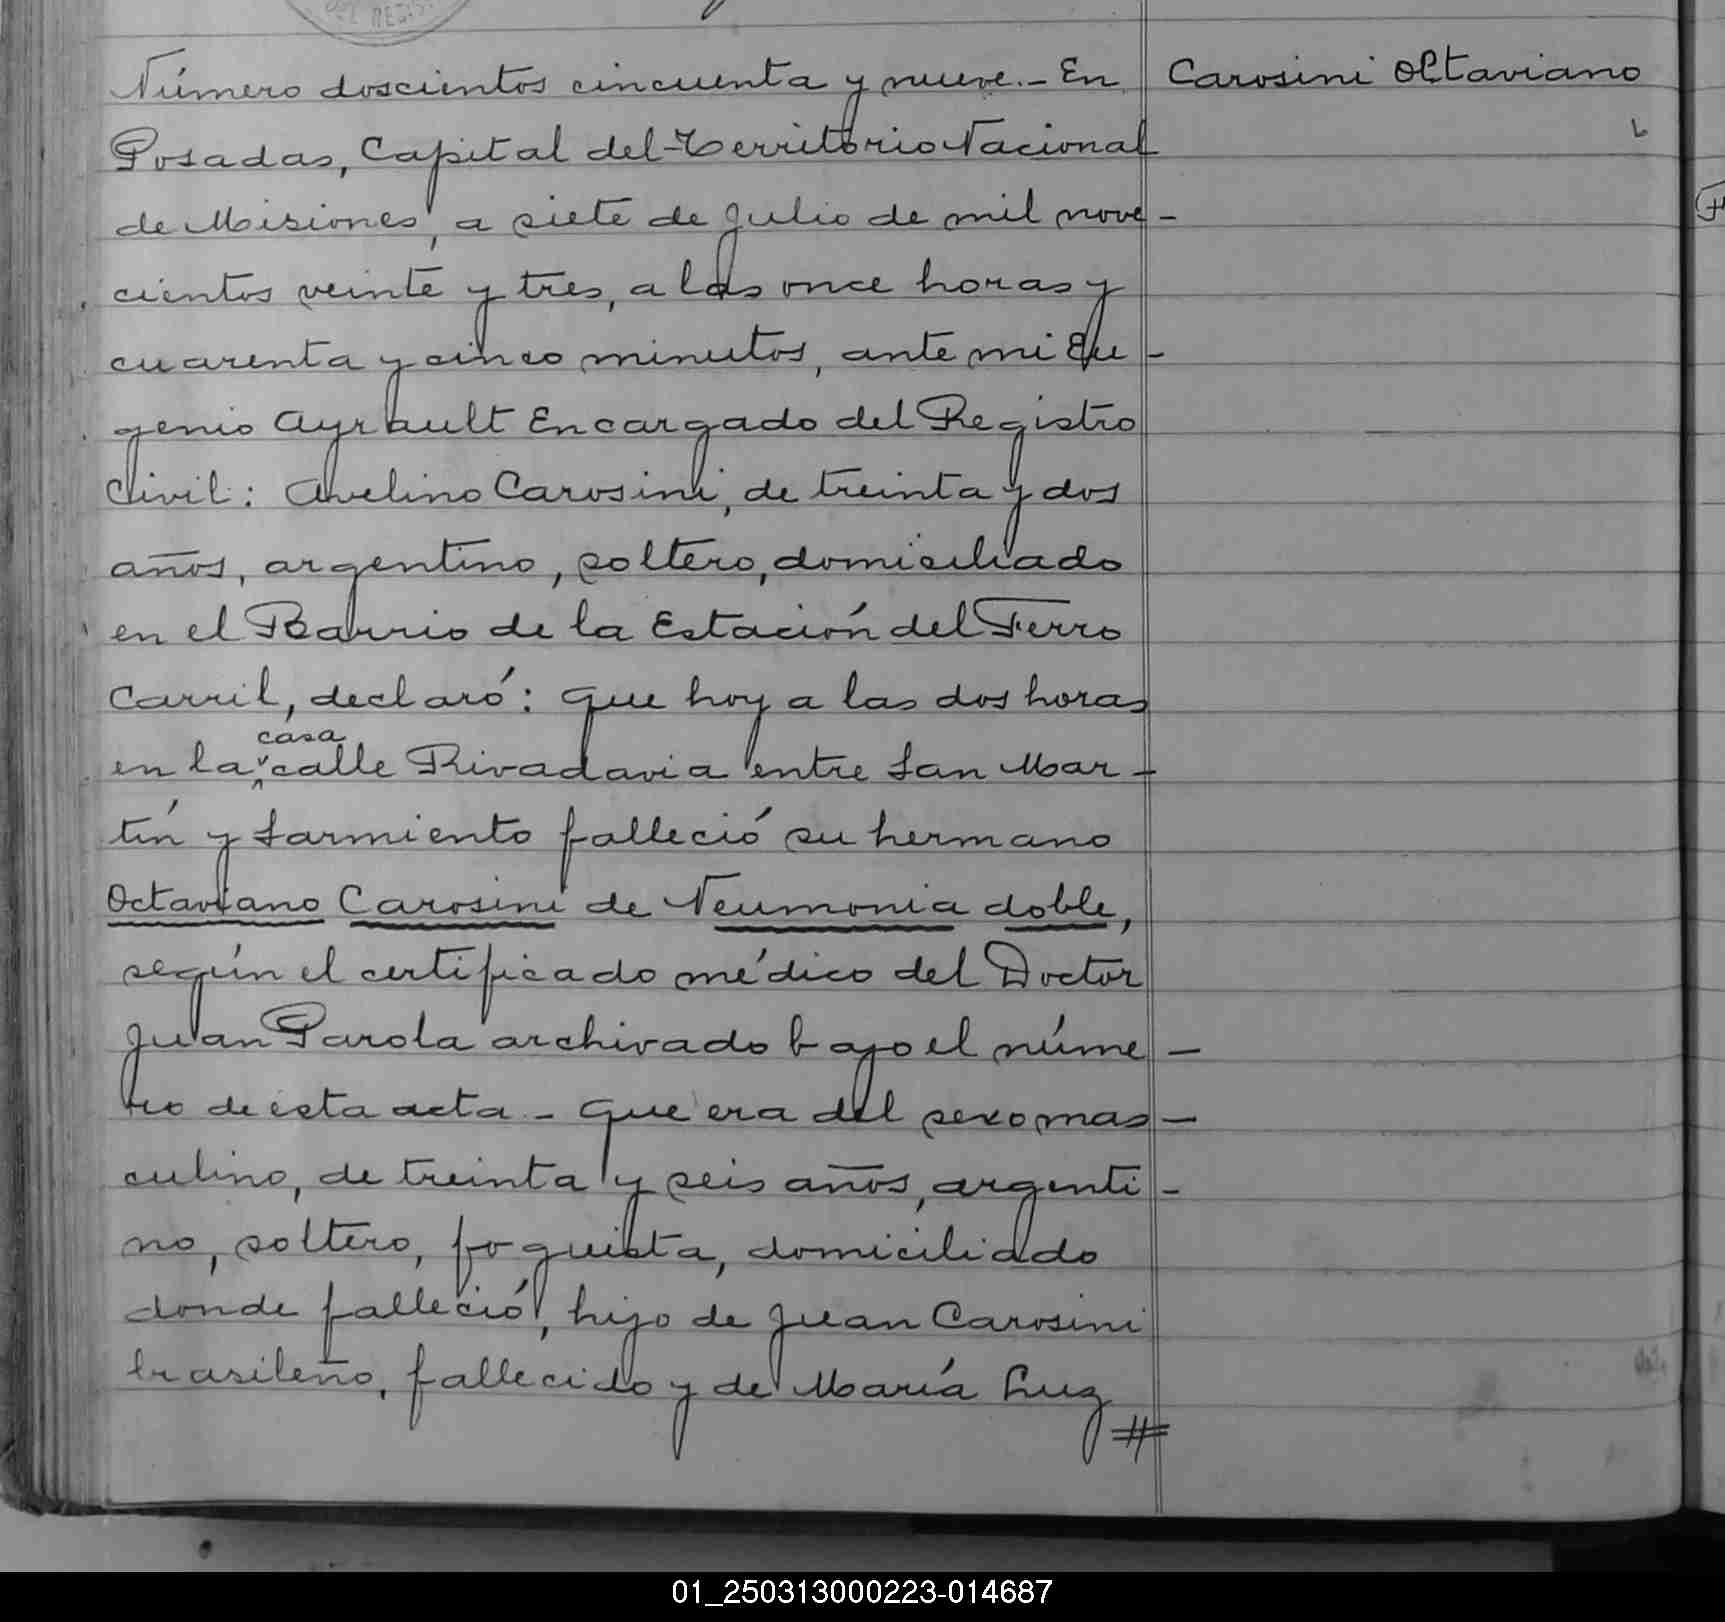 DEL REGIS
Número doscientos cincuenta y nueve.- En
Carosini Octaviano
Posadas, Capital del Territorio Nacional
de Misiones, a siete de Julio de mil nove-
cientos veinte y tres, a las once horas y
cuarenta y cinco minutos, ante mi Eu-
genio Ayrault Encargado del Registro
Civil: Avelino Carosini, de treinta y dos
años, argentino, soltero, domiciliado
en el Barrio de la Estación del Ferro
Carril, declaró: que hoy a las dos horas
casa
en la calle Rivadavia entre San Mar-
tín y Sarmiento falleció su hermano
Octaviano Carosini de Neumonia doble,
según el certificado médico del Doctor
Juan Parola archivado bajo el núme-
ro de esta acta - que era del sexo mas-
culino, de treinta y seis años, argenti-
no, soltero, foguista, domiciliado
donde falleció, hijo de Juan Carosini
brasileño, fallecido y de María Luz
#
01_250313000223-014687